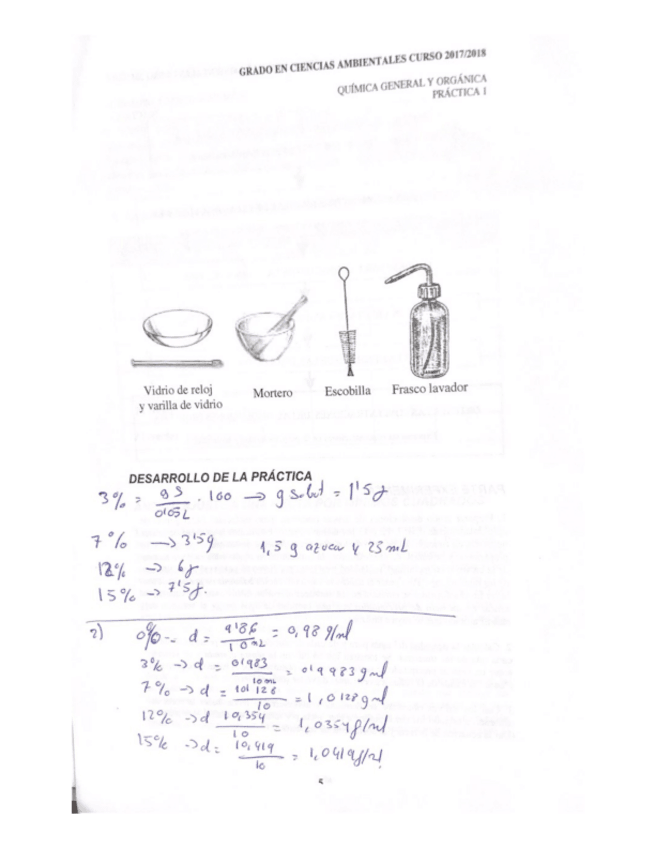 GRADO EN CIENCIAS AMBIENTALES CURSO 2017/2018
QUÍMICA GENERAL Y ORGÁNICA
PRÁCTICA 1
Vidrio de reloj
y varilla de vidrio
Mortero
Escobilla
Frasco lavador
DESARROLLO DE LA PRÁCTICA
3% = g S / 0'05 L . 100 → g Solut = 1'5 g
7% → 3'5 g
1,5 g azucar y 25 mL
12% → 6 g
15% → 7'5 g.
2) 0% → d = 9'86 / 10 mL = 0,98 g/ml
3% → d = / 10 mL = 0'9983 g/ml
7% → d = 10'128 / 10 = 1,0128 g/ml
12% → d 10,354 / 10 = 1,0354 g/ml
15% → d = 10,419 / 10 = 1,0419 g/ml